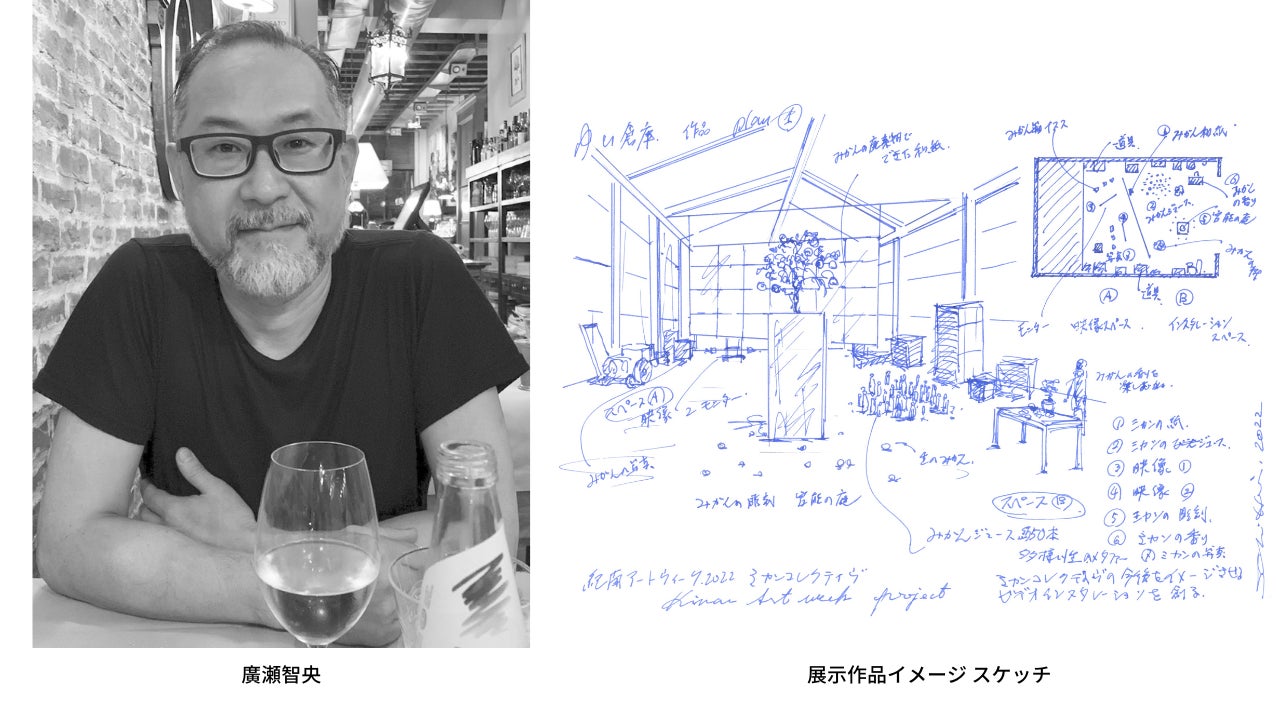 倉庫. 作品 plan
みかんの廃棄物で
できた和紙.
道具
みかん和紙.
みかんジュース.
みかん
の香り
官能の庭
写真
道具
Ⓐ
Ⓑ
モニター 映像スペース. インスタレーション
スペース.
みかんの香りを
スペースⒶ
映像 2モニター.
みかんの写真
生のみかん.
みかんの彫刻 官能の庭
スペースⒷ
みかんジュース
① ミカンの紙.
② ミカンのジュース.
③ 映像 ①
④ 映像 ②
⑤ ミカンの彫刻.
⑥ ミカンの香り
⑦ ミカンの写真
紀南アートウィーク.2022 ミカンコレクティヴ
Kinan Art week project
ミカンコレクティヴの今後をイメージさせる
ビデオインスタレーションを創る.
2022
廣瀬智央
展示作品イメージ スケッチ